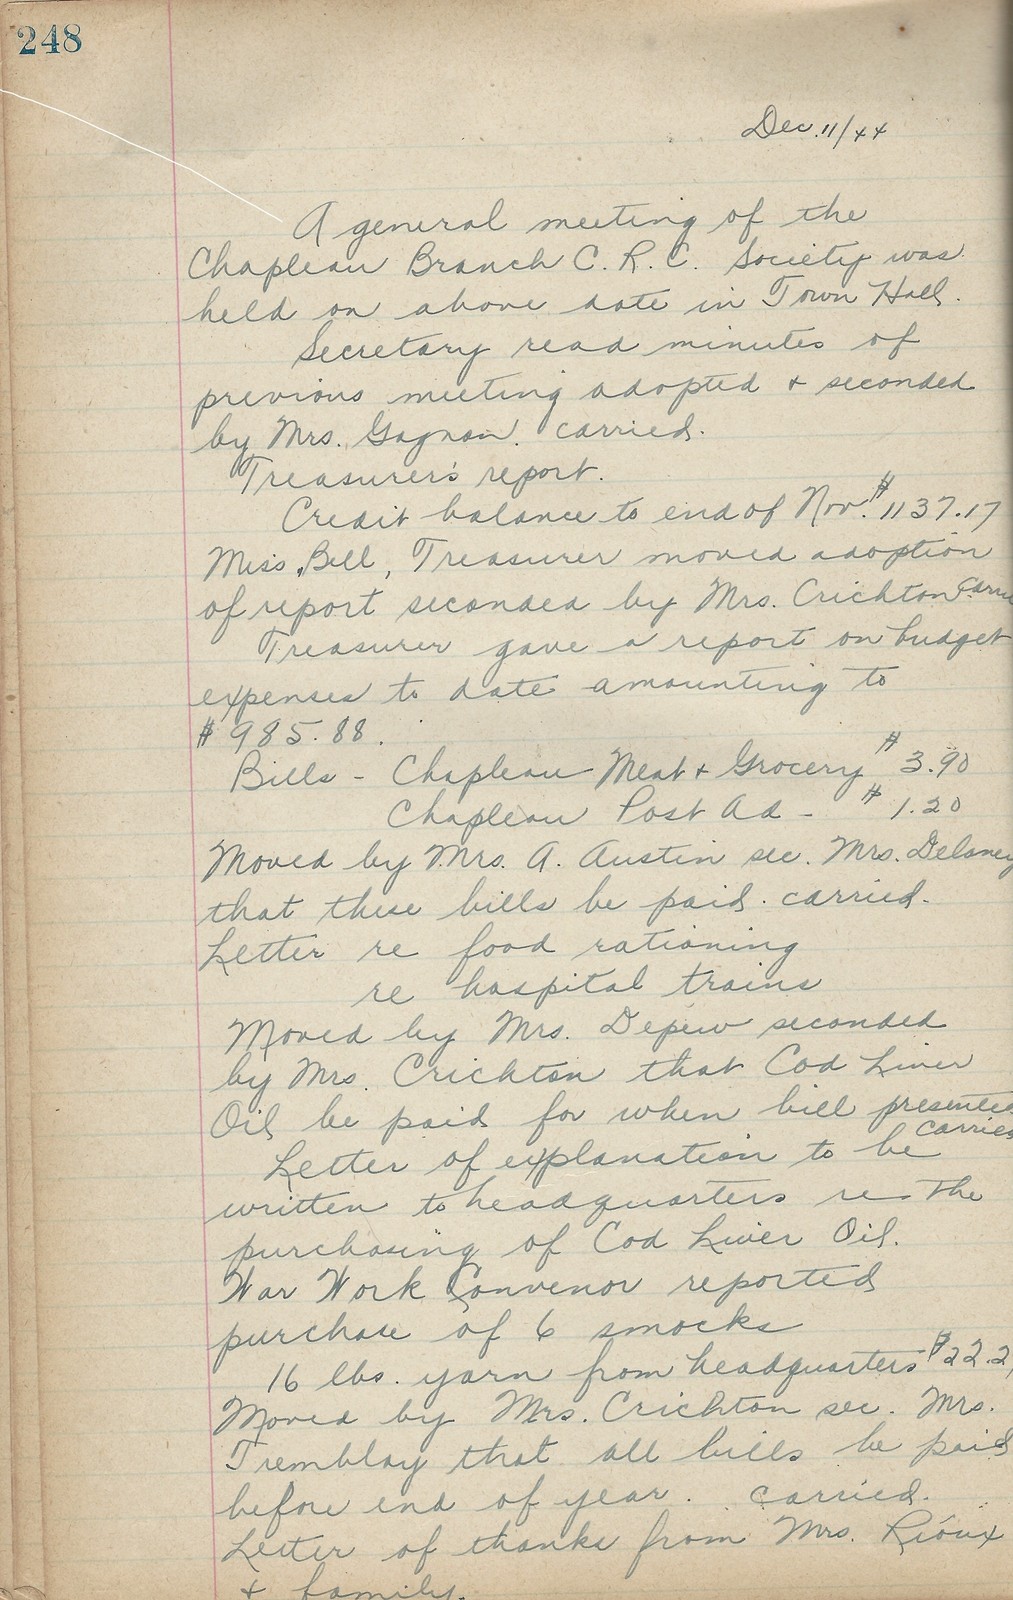 248
Dec. 11/44
A general meeting of the
Chapleau Branch C. R. C. Society was
held on above date in Town Hall.
Secretary read minutes of
previous meeting adopted & seconded
by Mrs. Gagnon. carried.
Treasurer's report.
Credit balance to end of Nov. $1137.17
Miss Bell, Treasurer moved adoption
of report seconded by Mrs. Crichton Carrie
Treasurer gave a report on budget
expenses to date amounting to
$985.88.
Bills - Chapleau Meat & Grocery $3.90
Chapleau Post Ad - $1.20
Moved by Mrs. A. Austin sec. Mrs. Delaney
that these bills be paid. carried.
Letter re food rationing
re hospital trains
Moved by Mrs. Depew seconded
by Mrs. Crichton that Cod Liver
Oil be paid for when bill presented
carried
Letter of explanation to be
written to headquarters re the
purchasing of Cod Liver Oil.
War Work Convenor reported
purchase of 6 smocks
16 lbs. yarn from headquarters $22.2
Moved by Mrs. Crichton sec. Mrs.
Tremblay that all bills be paid
before end of year. carried.
Letter of thanks from Mrs. Rioux
& family.